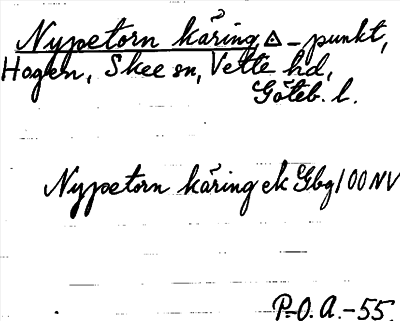 Nypetorn kåring, △ - punkt,
Hogen, Skee sn, Vette hd,
Göteb. l.
Nypetorn kåring ek Gbg 100 NV
P.O.A.-55.